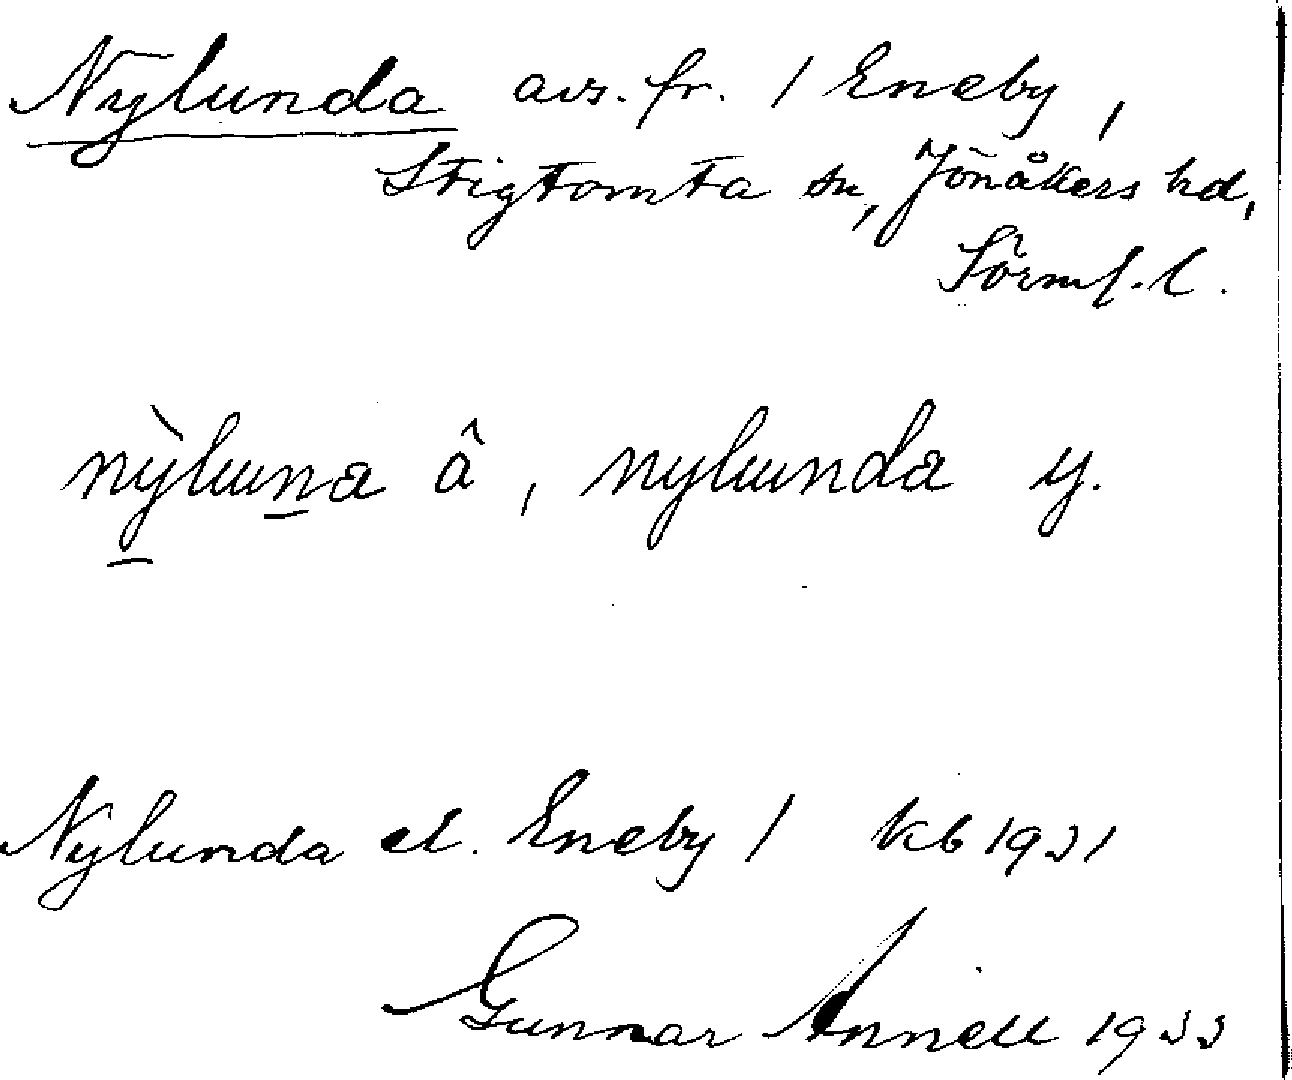 Nylunda avs. fr. 1 Eneby,
Stigtomta sn, Jönåkers hd,
Sörml. l.
nỳluna â, nylunda y.
Nylunda el. Eneby 1 kb 1931
Gunnar Annell 1933